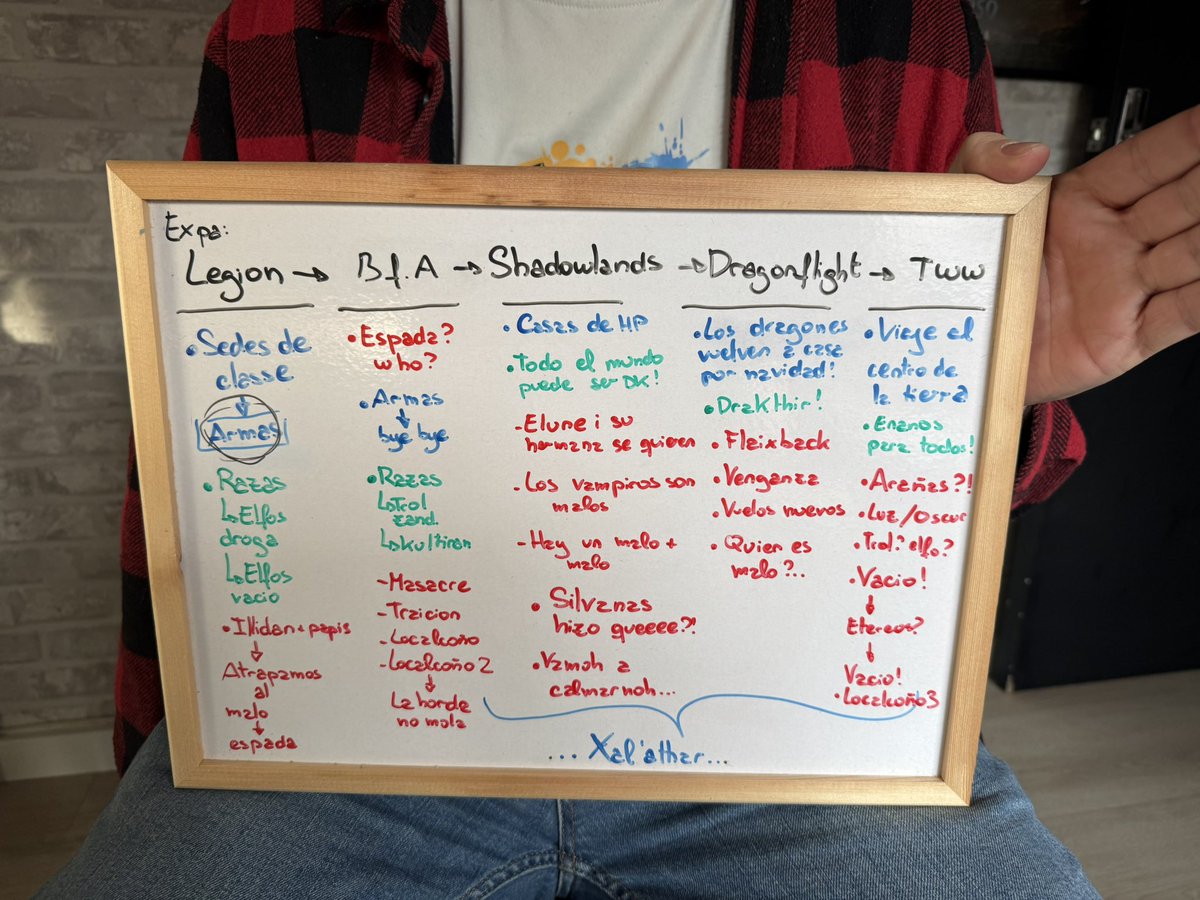 Expa:
Legion → B.f.A → Shadowlands → Dragonflight → TWW
• Sedes de
classe
↓
Armas
• Razas
↳ Elfos
droga
↳ Elfos
vacio
• Illidan + papis
↓
Atrapamos
al
malo
↓
espada
• Espada?
who?
• Armas
↓
bye bye
• Razas
↳ Trol
zand.
↳ kultiran
- Masacre
- Traicion
- Localcoño
- Localcoño 2
↓
La horde
no mola
• Casas de HP
• Todo el mundo
puede ser DK!
- Elune i su
hermana se quieren
- Los vampiros son
malos
- Hay un malo +
malo
• Silvanas
hizo queeee?!
• Vamoh a
calmarnoh...
• Los dragones
vuelven a casa
por navidad!
• Drakthir!
• Flaixback
• Venganza
• Vuelos nuevos
• Quien es
malo?...
• Viaje al
centro de
la tierra
• Enanos
para todos!
• Arañas?!
• Luz/Oscur
• Trol? elfo?
• Vacio!
↓
Etereos?
↓
Vacio!
• Localcoño3
... Xal'athar...